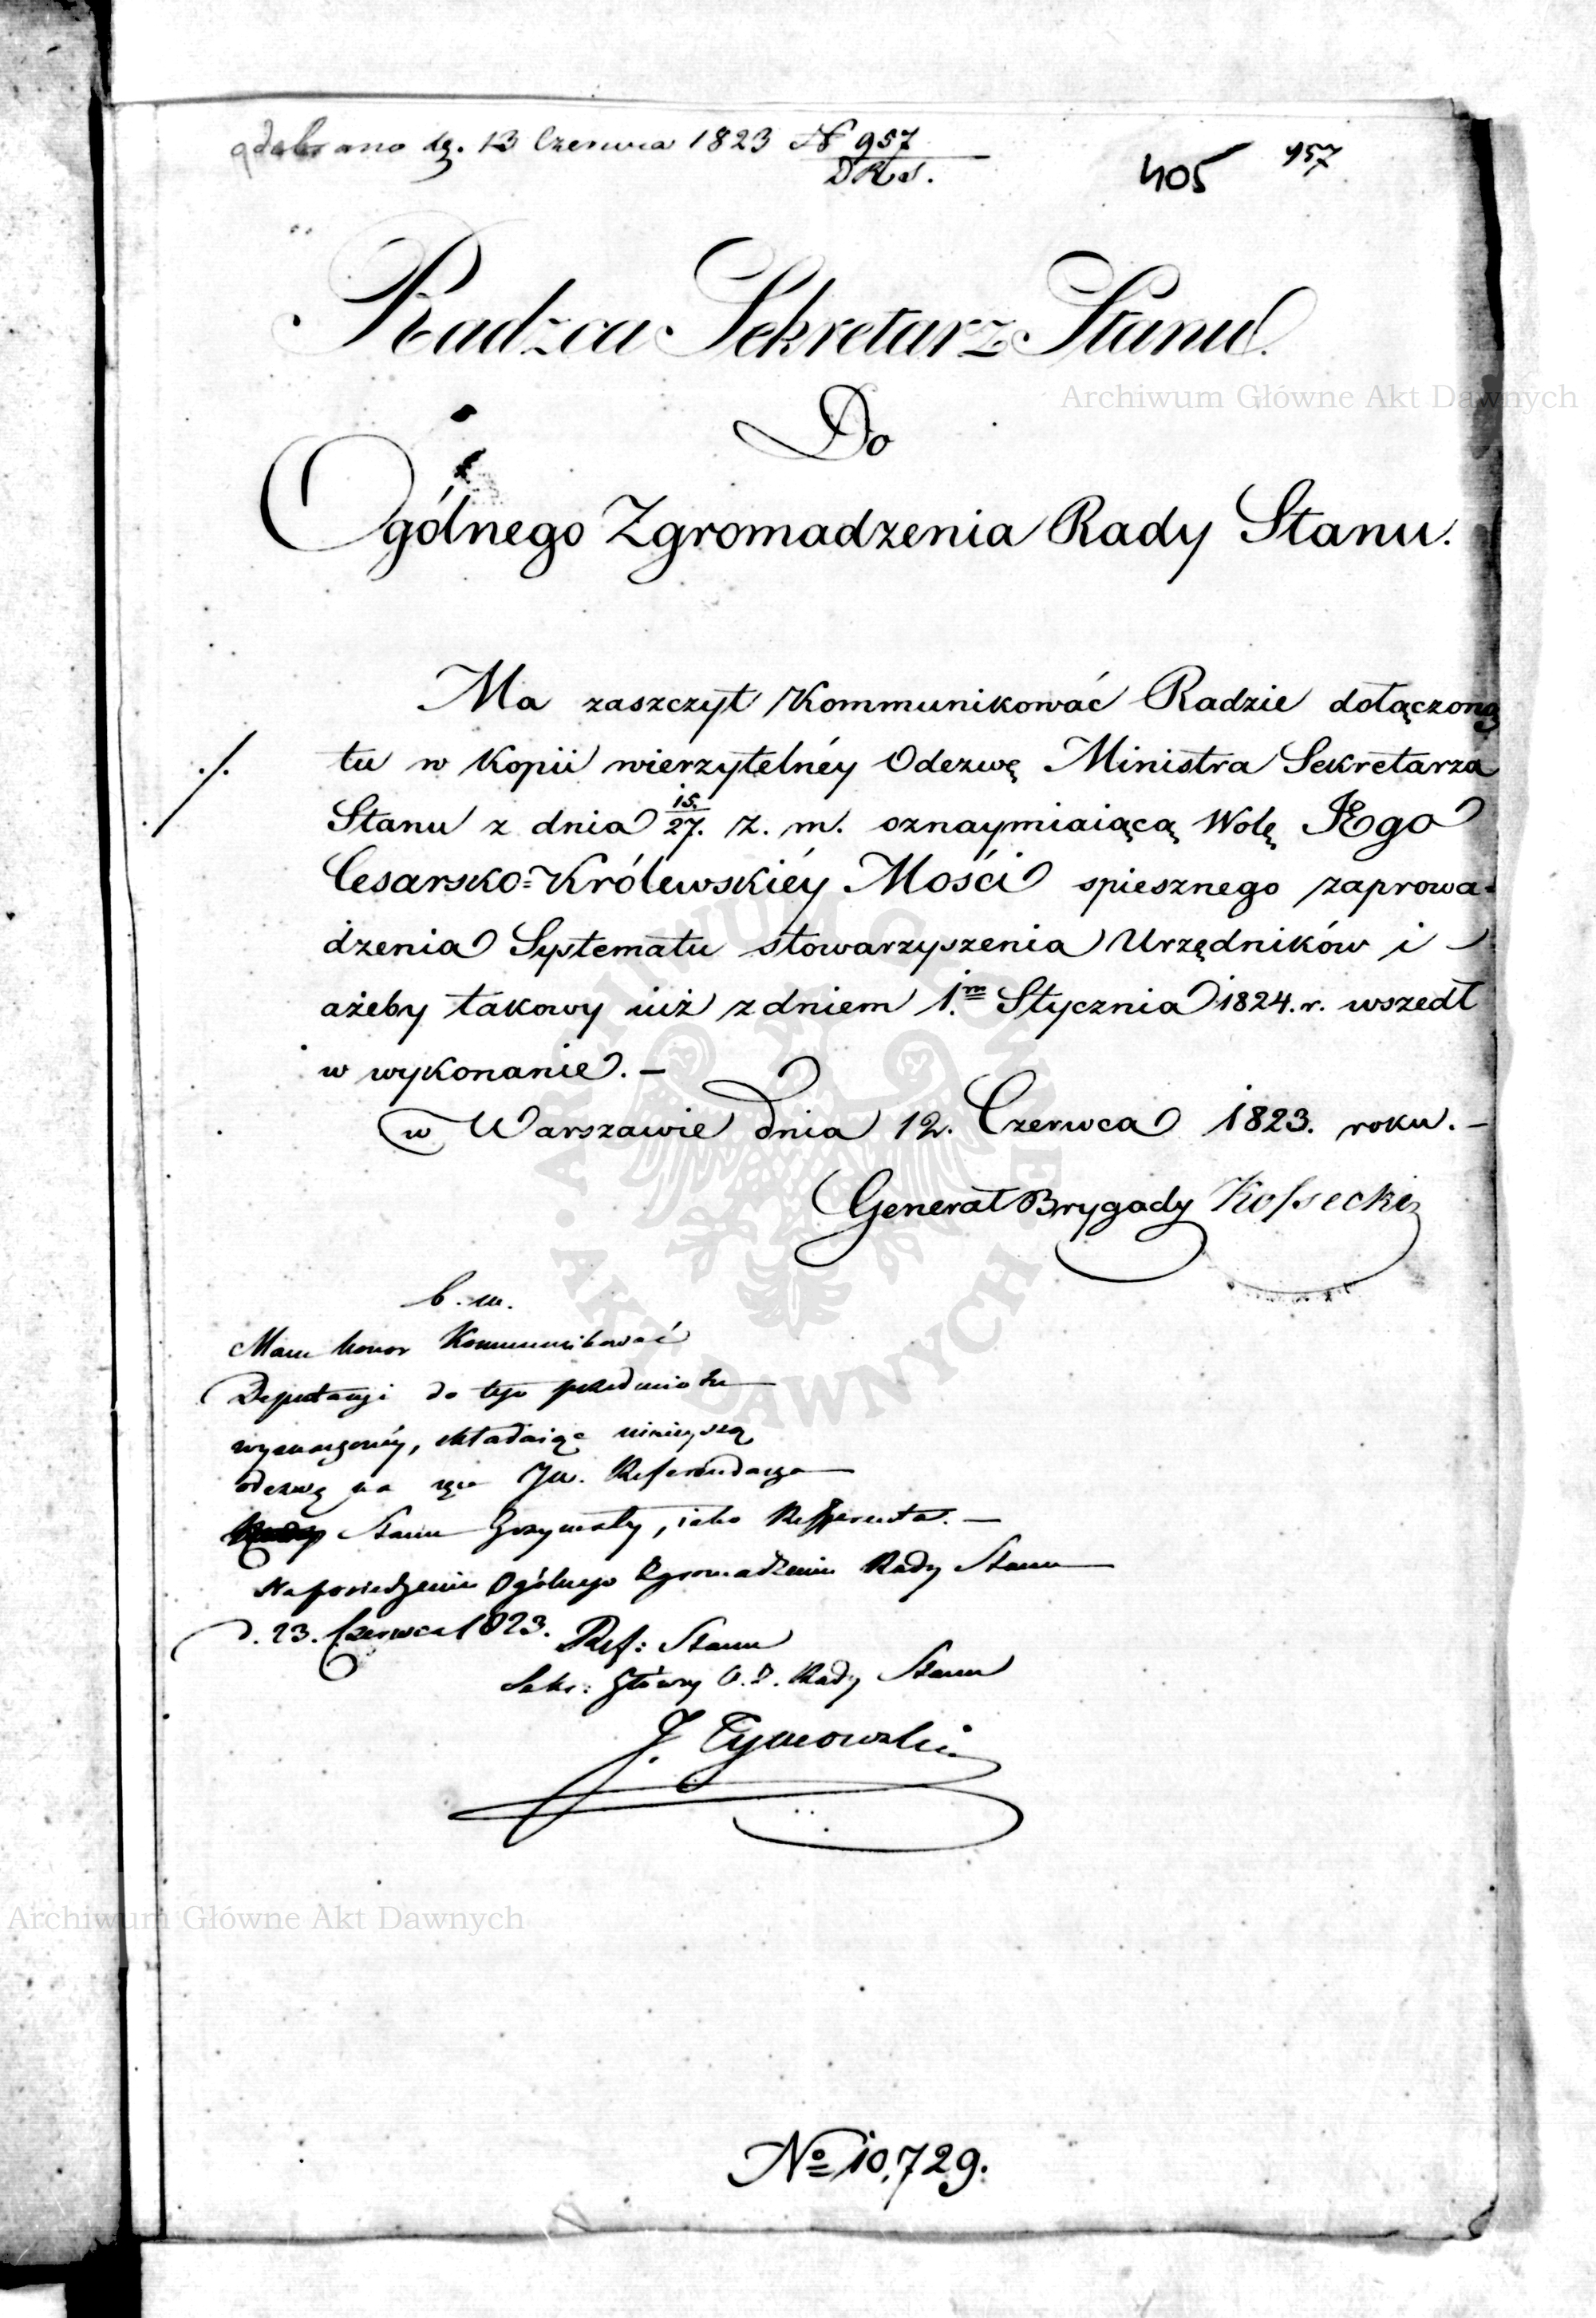 odebrano d. 13 Czerwca 1823 N 957
DRS.
405 957
Radzca Sekretarz Stanu.
Do
Ogólnego Zgromadzenia Rady Stanu.
Ma zaszczyt Kommunikować Radzie dołączoną
./. tu w Kopii wierzytelnéy Odezwę Ministra Sekretarza
Stanu z dnia 15/27. z. m. oznaymiaiącą Wolę JEgo
Cesarsko=Królewskiéy Mości spiesznego zaprowa-
dzenia Systematu stowarzyszenia Urzędników i
ażeby takowy iuż z dniem 1.m Stycznia 1824. r. wszedł
w wykonanie. —
w Warszawie dnia 12. Czerwca 1823. roku. —
Generał Brygady Kossecki
b. m.
Mam honor Kommunikować
Deputacyi do tego przedmiotu
wyznaczonéy, składaiąc ninieyszą
odezwę na ręce JW. Referendarza
Stanu Grzymały, iako Refferenta. —
Na posiedzeniu Ogólnego Zgromadzenia Rady Stanu
d. 23. Czerwca 1823. Ref: Stanu
Sekr: Główny O. Z. Rady Stanu
J. Tymowski
No 10,729.
Archiwum Główne Akt Dawnych
Archiwum Główne Akt Dawnych
ARCHIWUM GŁÓWNE AKT DAWNYCH